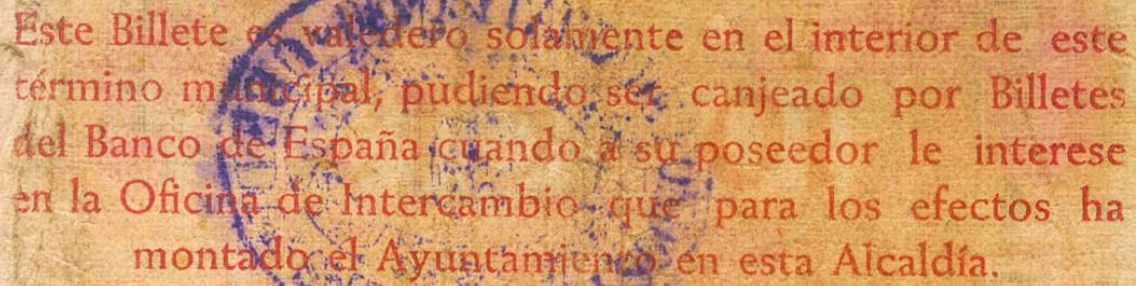 Este Billete es valedero solamente en el interior de este
término municipal, pudiendo ser canjeado por Billetes
del Banco de España cuando a su poseedor le interese
en la Oficina de Intercambio que para los efectos ha
montado el Ayuntamiento en esta Alcaldía.